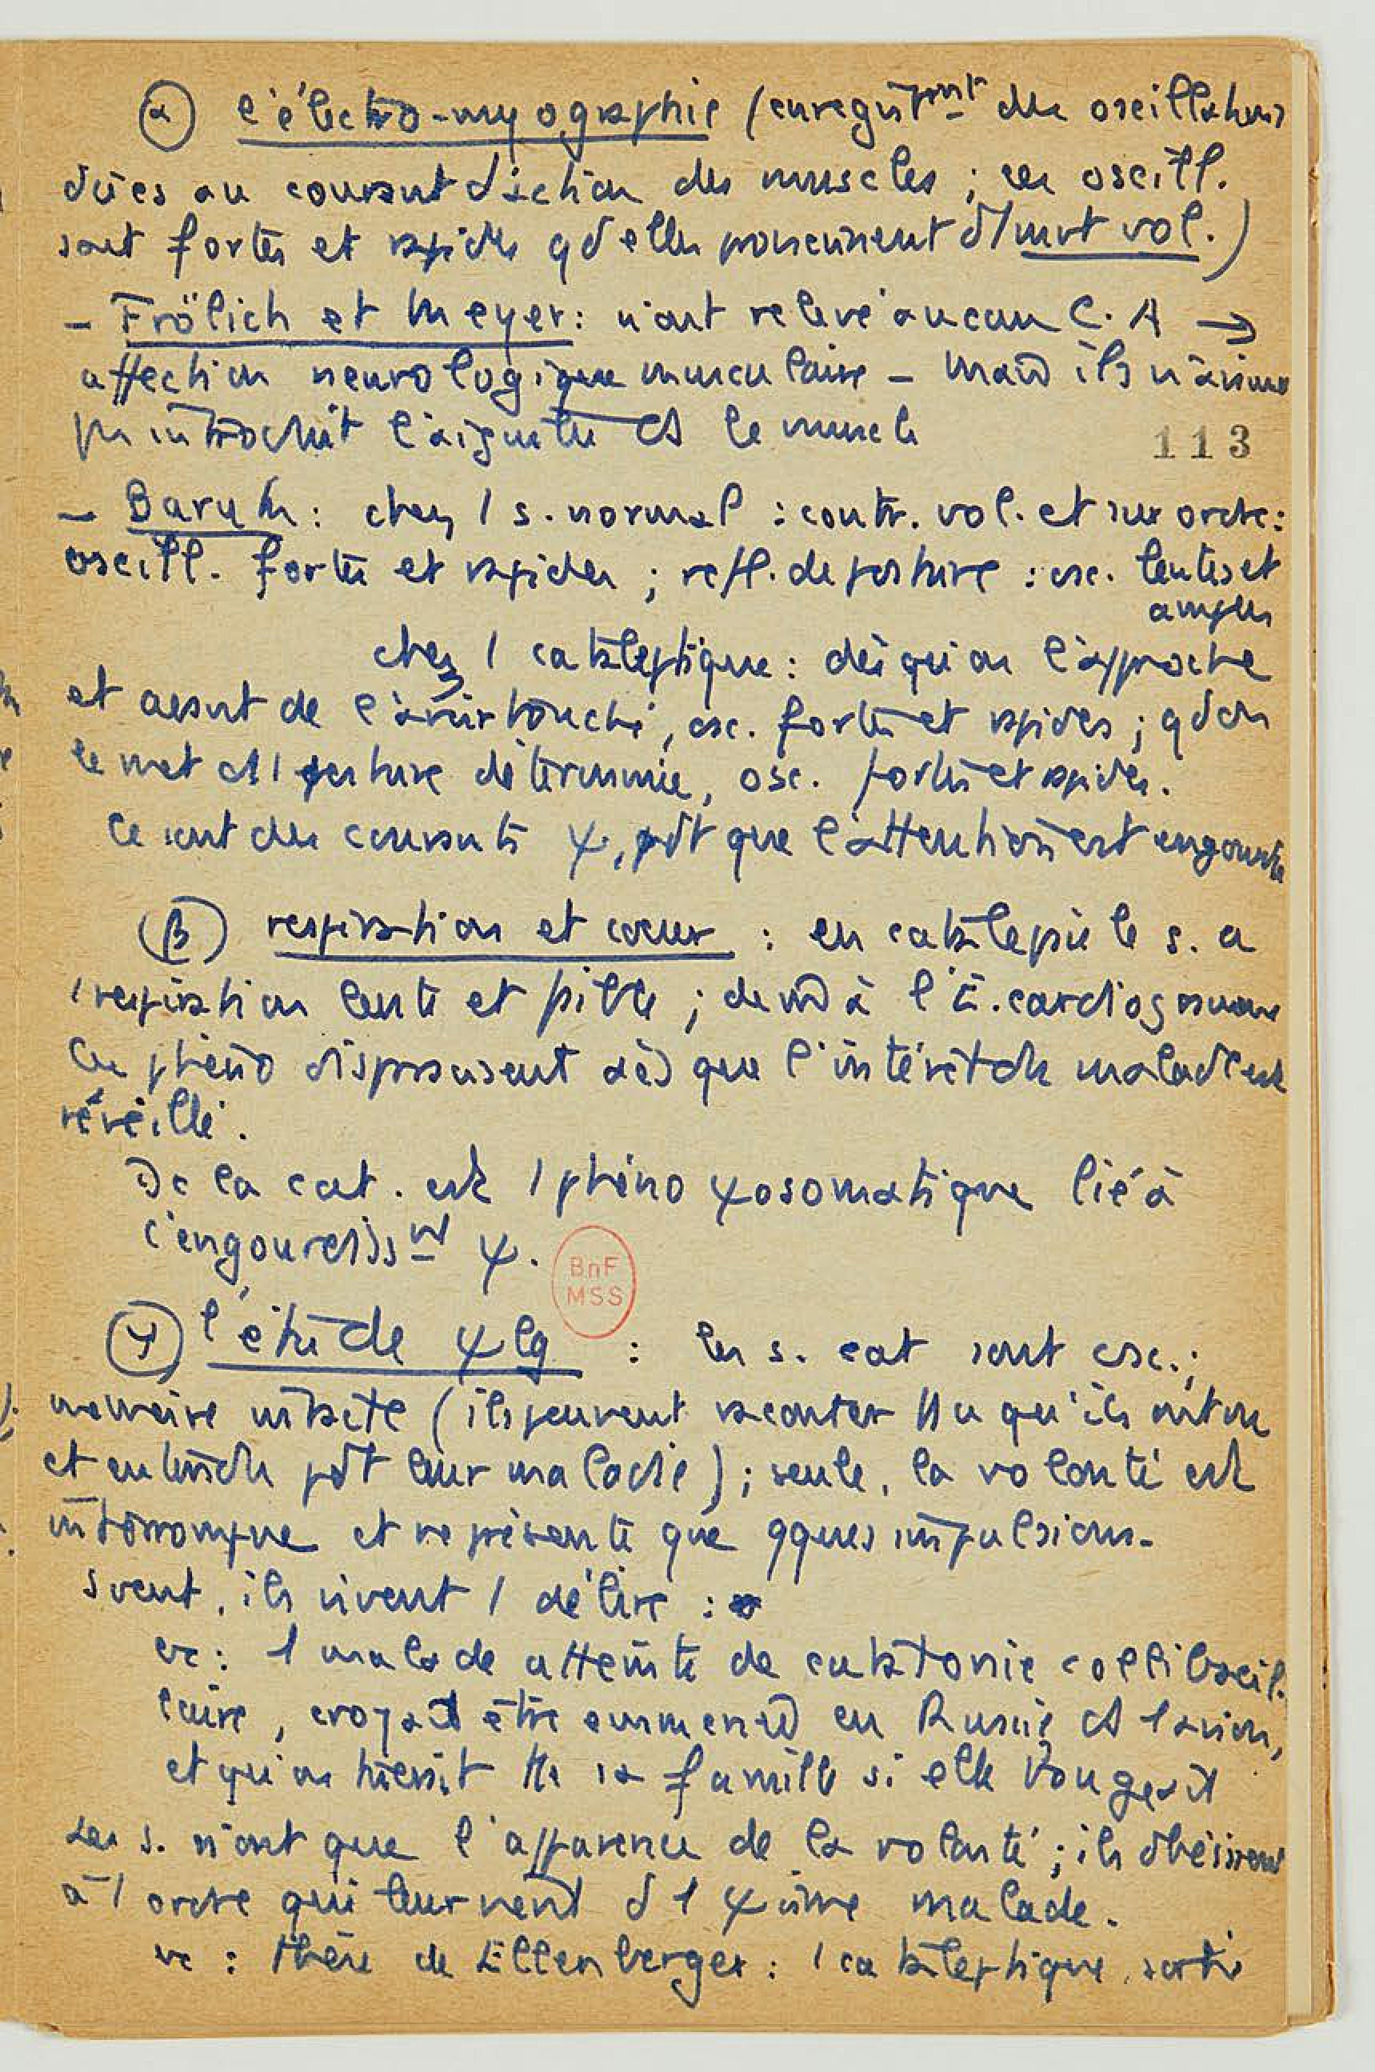 α l'électro-myographie (enregistrmt des oscillations
dües au courant d'action des muscles ; ces oscill.
sont fortes et rapides qd elles proviennent d'1 mvt vol.)
– Frölich et Meyer : n'ont relevé aucun C. A →
affection neurologique musculaire – mais ils n'avaient
pas introduit l'aiguille ds le muscle
113
– Baruk : chez 1 s. normal : contr. vol. et sur ordre :
oscill. fortes et rapides ; refl. de posture : osc. lentes et
amples
chez 1 cataleptique : dès qu'on l'approche
et avant de l'avoir touché, osc. fortes et rapides ; qd on
le met ds 1 posture déterminée, osc. fortes et rapides.
Ce sont des courants ψ, pdt que l'attention est engourdie
β respiration et coeur : en catalepsie le s. a
1 respiration lente et faible ; de m à l'E. cardiogramme
Ces phéno disparaissent dès que l'intérêt du malade est
réveillé.
Dc la cat. est 1 phéno ψosomatique lié à
l'engourdissmt ψ.
BnF
MSS
γ l'étude ψlg : les s. cat sont csc. ;
mémoire intacte (ils peuvent raconter tt ce qu'ils ont vu
et entendu pdt leur maladie) ; seule, la volonté est
interrompue et représente que qques impulsions.
Svent, ils vivent 1 délire :
ex : 1 malade atteinte de catatonie colibacil-
laire, croyait être emmenée en Russie ds 1 avion,
et qu'on tuerait tte sa famille si elle bougeait
Les s. n'ont que l'apparence de la volonté ; ils obéissent
à 1 ordre qui leur vient d'1 ψisme malade.
ex : thèse de Ellenberger : 1 cataleptique, sortie